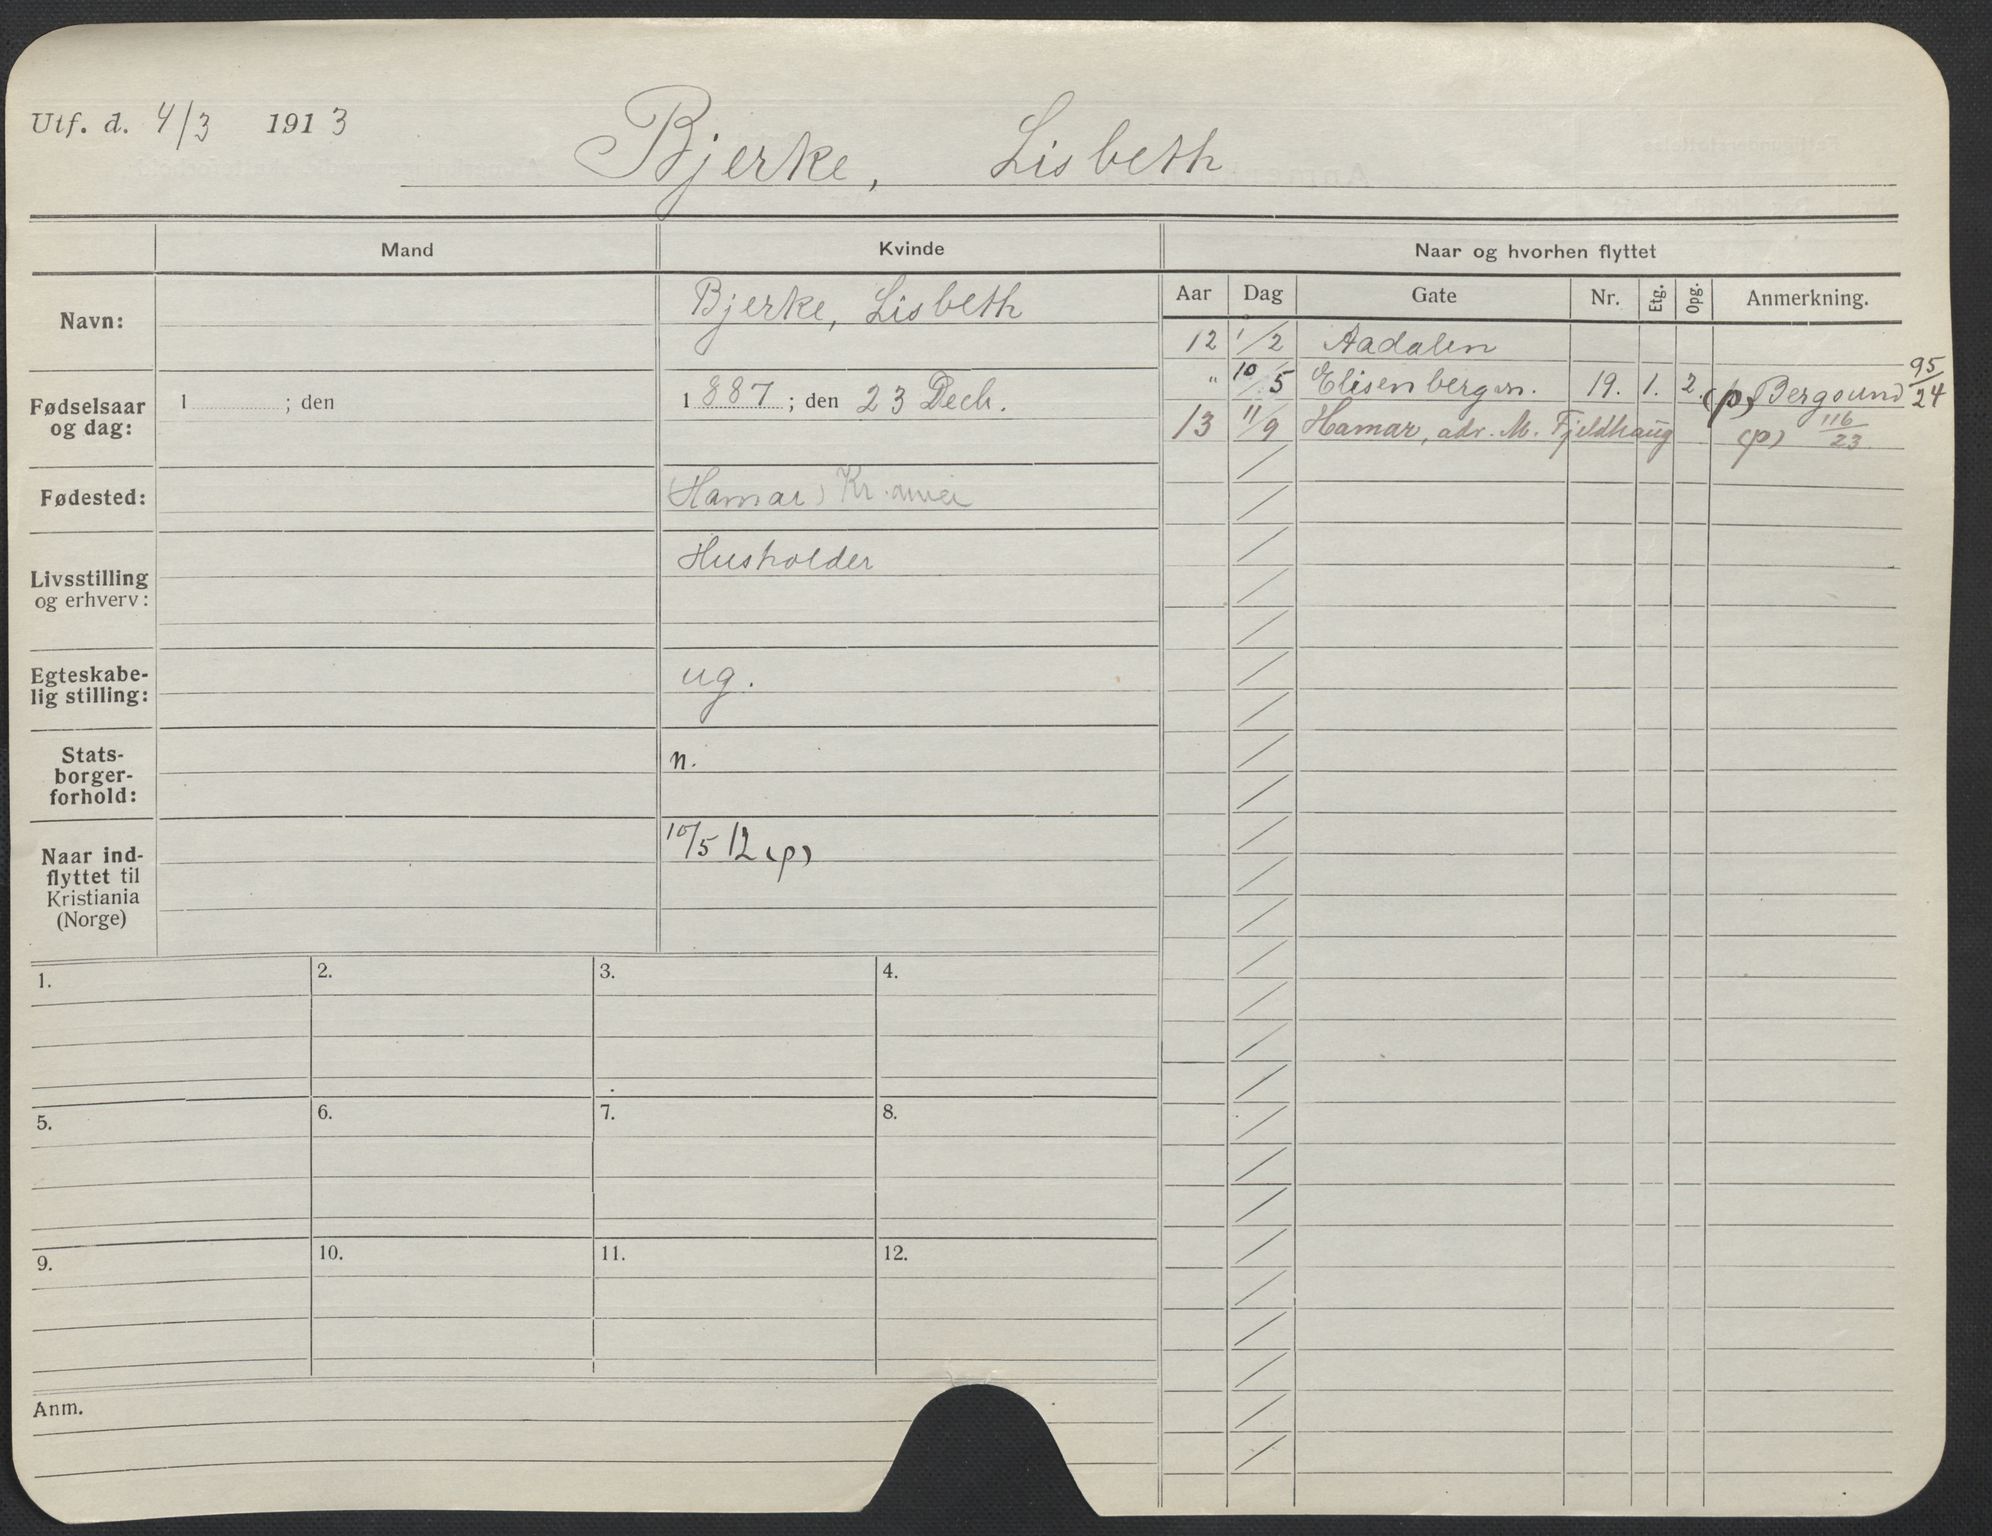 Utf. d. 4/3 1913
Bjerke, Lisbeth
Mand
Kvinde
Naar og hvorhen flyttet
Navn:
Bjerke, Lisbeth
Fødselsaar
og dag:
1 ; den
1887 ; den 23 Decb.
Fødested:
(Hamar)
Livsstilling
og erhverv:
Husholder
Egteskabe-
lig stilling:
ug.
Stats-
borger-
forhold:
n.
Naar ind-
flyttet til
Kristiania
(Norge)
10/5 12 (p)
Aar Dag Gate Nr. Etg. Opg. Anmerkning.
12 1/2 Aadalen
" 10/5 Elisenbergvn. 19. 1. 2. (p) Bergsund 95/24
13 11/9 Hamar, adr. M. Fjeldhaug (p) 116/23
1. 2. 3. 4.
5. 6. 7. 8.
9. 10. 11. 12.
Anm.